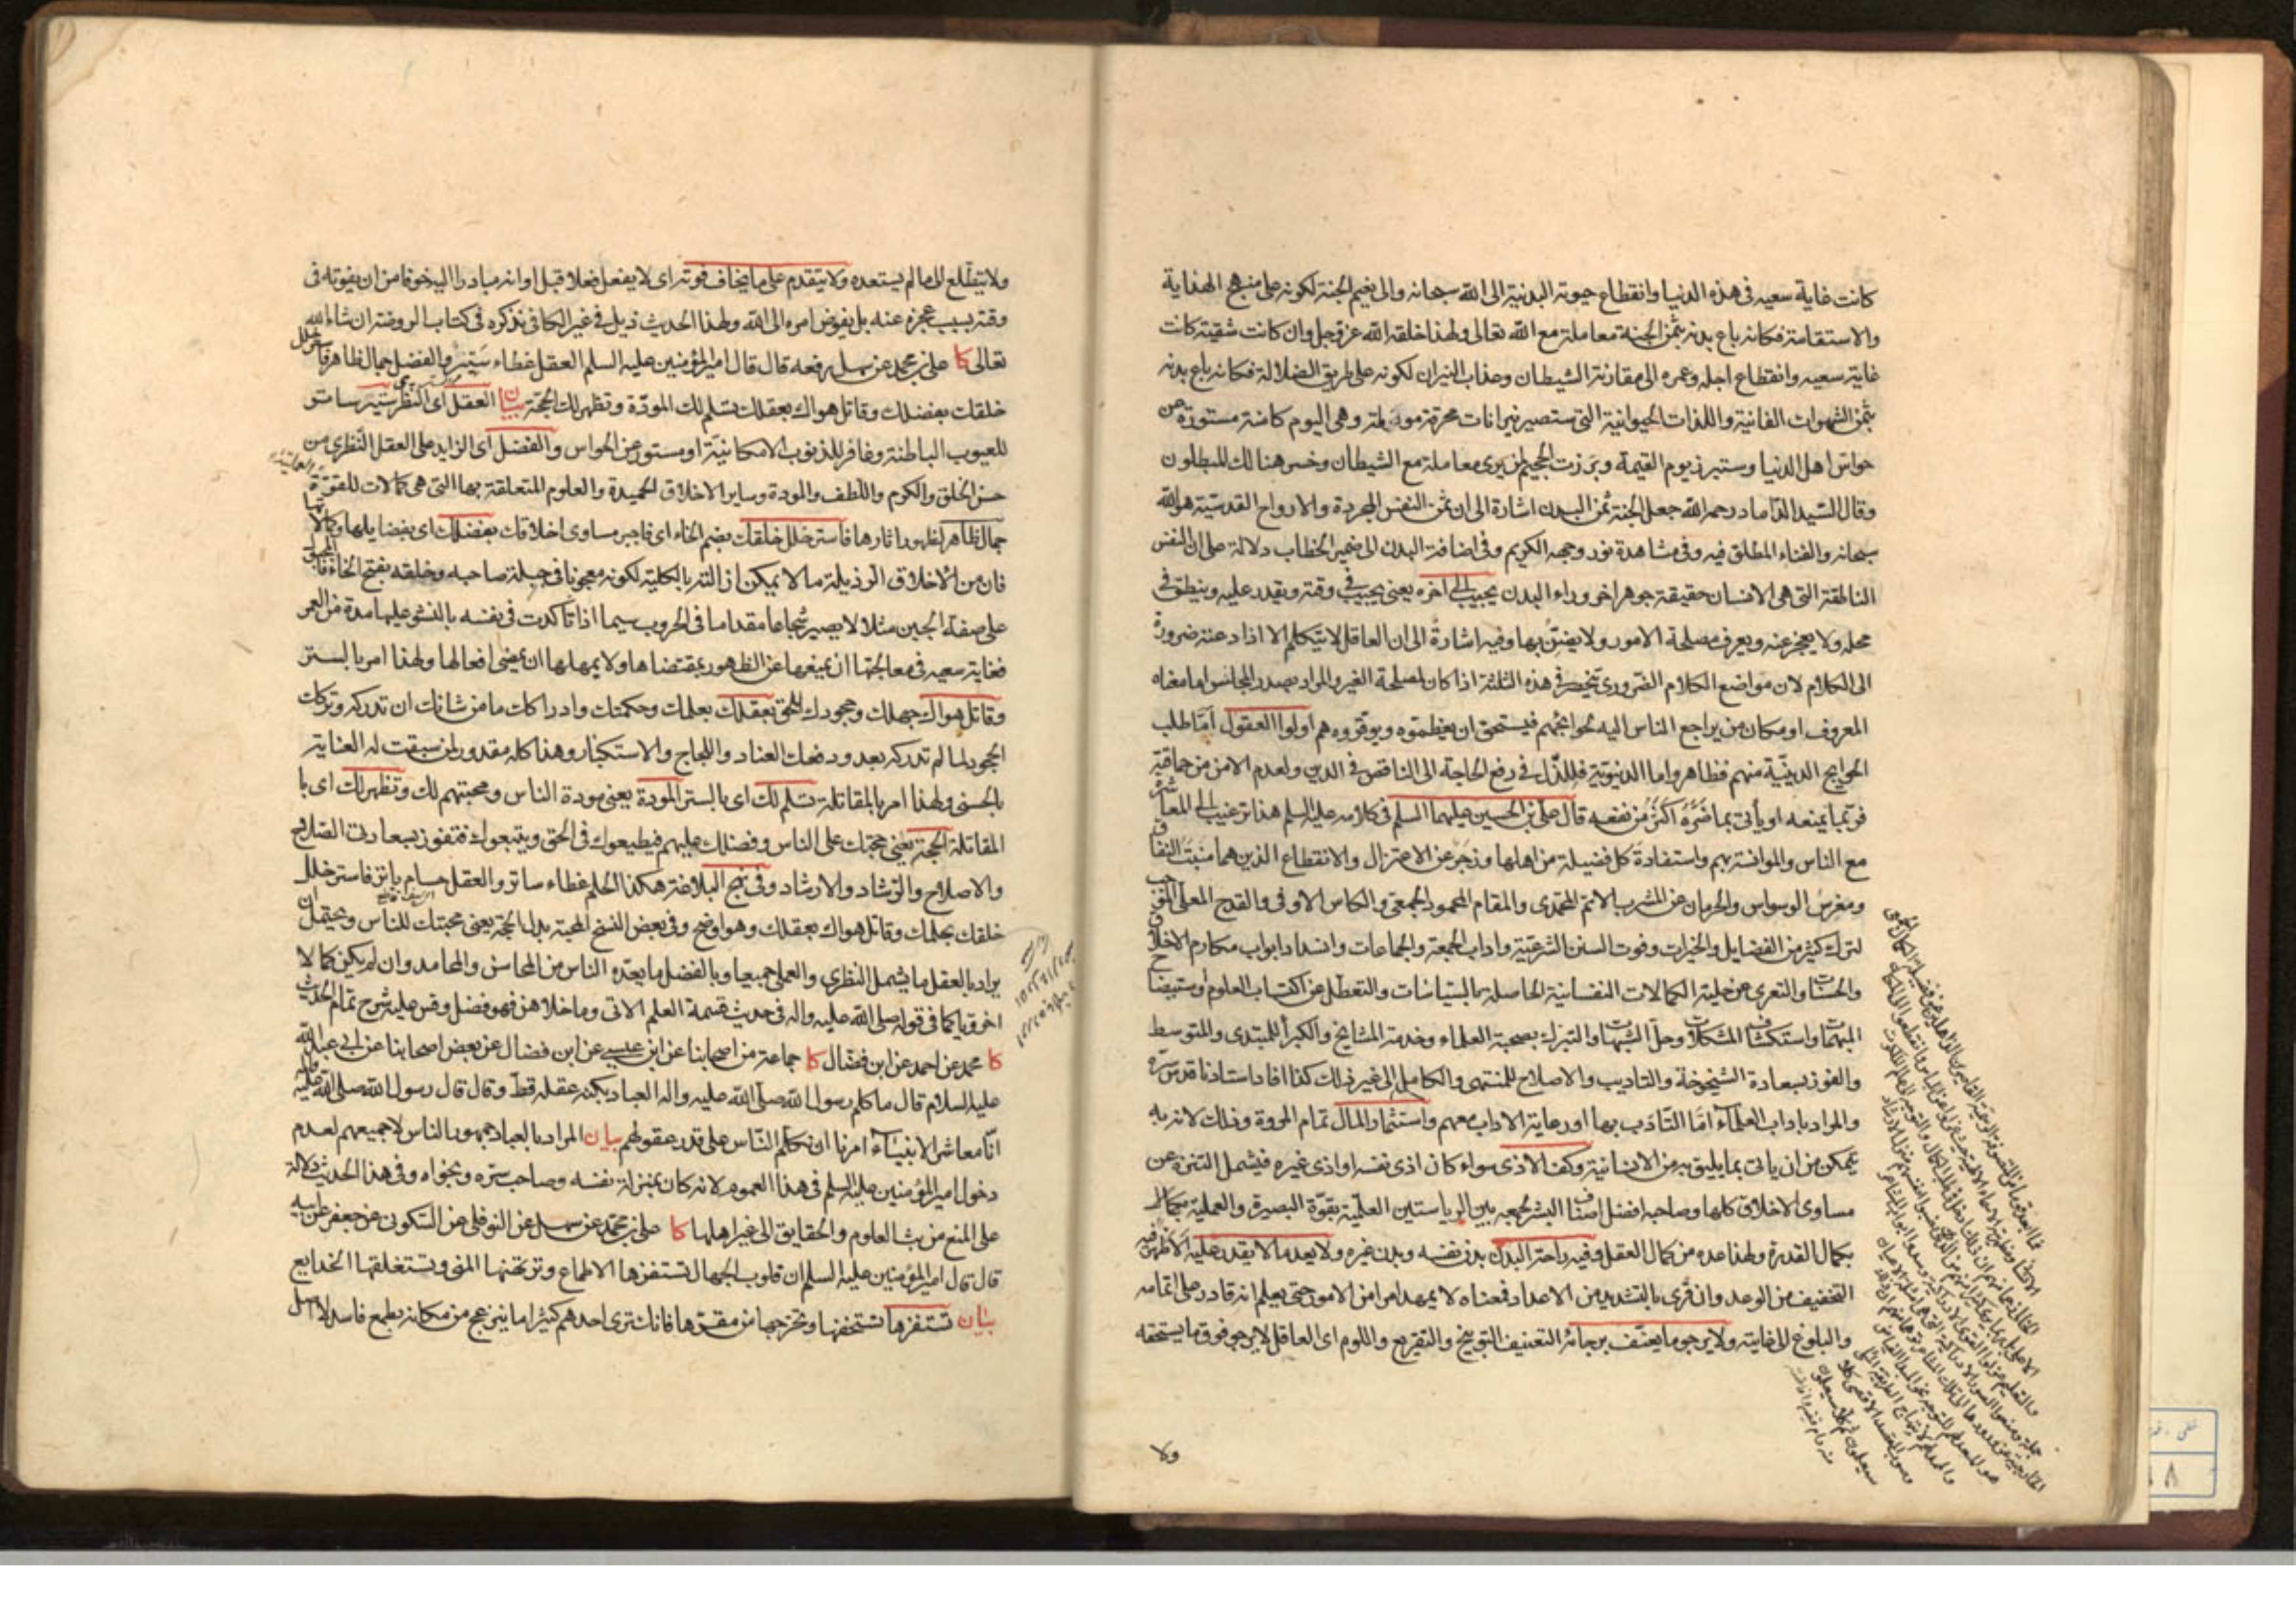 كانت غاية سعيه في هذه الدنيا وانقطاع حيوته البدنية الى الله سبحانه والى نعيم الجنة لكونه على منهج الهداية
والاستقامة فكانه باع بدنه بثمن الجنة معاملة مع الله تعالى ولهذا خلقه الله عز وجل وان كانت شقية كانت
غاية سعيه وانقطاع اجله وعمره الى مقارنة الشيطان وعذاب النيران لكونه على طريق الضلالة فكانه باع بدنه
بثمن الشهوات الفانية واللذات الحيوانية التي ستصير نيرانات محرقة مولمة وهي اليوم كامنة مستورة عن
حواس اهل الدنيا وستبرز يوم القيمة وبرزت الجحيم لمن يرى معاملة مع الشيطان وخسر هنالك المبطلون
وقال السيد الداماد رحمه الله جعل الجنة ثمن البدن اشارة الى ان ثمن النفس المجردة والارواح القدسية هو الله
سبحانه والفناء المطلق فيه وفي مشاهدة نور وجهه الكريم وفي اضافة البدن الى ضمير الخطاب دلالة على ان النفس
الناطقة التي هي الانسان حقيقة جوهر اخر وراء البدن يجيب الى اخره يعني يجيب في وقته ويقدر عليه وينطق في
محله ولا يعجز عنه ويعرف مصلحة الامور ولا يضن بها وفيه اشارة الى ان العاقل لا يتكلم الا اذا دعته ضرورة
الى الكلام لان مواضع الكلام الضروري تنحصر في هذه الثلثة اذا كان لمصلحة الغير والمراد بصدر المجالس اما معناه
المعروف او مكان من يراجع الناس اليه لحوائجهم فيستحق ان يعظموه ويوقروه هم اولوا العقول اما طلب
الحوايج الدينية منهم فظاهر واما الدنيوية فللذل في رفع الحاجة الى الناقص في الدين ولعدم الامن من حماقته
فربما يمنعه او يأتي بما ضره اكثر من نفعه قال علي بن الحسين عليهما السلم في كلامه عليه السلم هذا ترغيب الى المعاشرة
مع الناس والموانسة بهم واستفادة كل فضيلة من اهلها وزجر عن الاعتزال والانقطاع الذين هما منبت النفاق
ومغرس الوسواس والحرمان عن المشرب الاتم المحمدي والمقام المحمود الجمعي والكاس الاوفى والقدح المعلى الموجب
لترك كثير من الفضايل والخيرات وفوت السنن الشرعية واداب الجمعة والجماعات وانسداد ابواب مكارم الاخلاق
والحسنات والتعري عن حلية الكمالات النفسانية الحاصلة بالسياسات والتعطل عن اكتساب العلوم واستيضاح
المبهمات واستكشاف المشكلات وحل الشبهات والتبرك بصحبة العلماء وخدمة المشايخ والكبراء للمبتدى والمتوسط
والفوز بسعادة الشيخوخة والتاديب والاصلاح للمنتهى والكامل الى غير ذلك كذا افاد استادنا قدس سره
والمراد باداب العلماء اما التأدب بها او رعاية الاداب معهم واستثمار المال تمام المروة وذلك لانه به
يمكن من ان ياتي بما يليق به من الانسانية وكف الاذى سواء كان اذى نفسه او اذى غيره فيشمل التنزه عن
مساوى الاخلاق كلها وصاحبه افضل اصناف البشر لجمعه بين الرياستين العلمية بقوة البصيرة والعملية بكمال
بكمال القدرة ولهذا عده من كمال العقل وفيه راحة البدن بدن نفسه وبدن غيره ولا يعد ما لا يقدر عليه الاظهر فيه
التخفيف من الوعد وان قرى بالتشديد من الاعداد فمعناه لا يمهد امرا من الامور حتى يعلم انه قادر على اتمامه
والبلوغ الى غايته ولا يرجو ما يعنف برجائه التعنيف التوبيخ والتقريع واللوم اى العاقل لا يرجو فوق ما يستحقه
ولا
ولا يتطلع الى ما لم يستعده ولا يتقدم على ما يخاف فوته اى لا يفعل فعلا قبل اوانه مبادرا اليه خوفا من ان يفوته في
وقته بسبب عجزه عنه بل يفوض امره الى الله ولهذا الحديث ذيل في غير الكافي نذكره في كتاب الروضة ان شاء الله
تعالى كا علي بن محمد عن سهل رفعه قال قال امير المؤمنين عليه السلم العقل غطاء ستير والفضل جمال ظاهر فاستر خلل
خلقك بفضلك وقاتل هواك بعقلك تسلم لك المودة وتظهر لك الحجة بيان العقل اى النظرى ستير ساتر
للعيوب الباطنة وغافر للذنوب الامكانية او مستور عن الحواس والفضل اى الزايد على العقل النظرى من
حسن الخلق والكرم واللطف والمودة وساير الاخلاق الحميدة والعلوم المتعلقة بها التي هي كمالات للقوة العملية
جمال ظاهر لظهور اثارها فاستر خلل خلقك بضم الخاء اى فاجبر مساوى اخلاقك بفضلك اى بفضايلها وكمالاتها
فان من الاخلاق الرذيلة ما لا يمكن ازالته بالكلية لكونه معجونا في جبلة صاحبه وخلقه بفتح الخاء فالمجبول
على صفة الجبن مثلا لا يصير شجاعا مقداما في الحروب سيما اذا تاكدت في نفسه بالنشو عليها مدة من العمر
فغاية سعيه في معالجتها ان يمنعها عن الظهور بمقتضاها ولا يمهلها ان يمضى افعالها ولهذا امر بالستر
وقاتل هواك جهلك وجحودك للحق بعقلك بعلمك وحكمتك وادراكك ما من شانك ان تدركه وتركك
الجحود لما لم تدركه بعد ودفعك العناد واللجاج والاستكبار وهذا كله مقدور لمن سبقت له العناية
بالحسنى ولهذا امر بالمقاتلة تسلم لك اى بالستر المودة يعني مودة الناس ومحبتهم لك وتظهر لك اى با
المقاتلة الحجة يعني حجتك على الناس وفضلك عليهم فيطيعوك في الحق ويتبعوك فتفوز بسعادتى الصلاح
والاصلاح والرشاد والارشاد وفي نهج البلاغة هكذا الحلم غطاء ساتر والعقل حسام باتر فاستر خلل
خلقك بحلمك وقاتل هواك بعقلك وهو اوضح وفي بعض النسخ المحبة بدل الحجة يعني محبتك للناس ويحتمل ان
يراد بالعقل ما يشمل النظري والعملى جميعا وبالفضل ما يعده الناس من المحاسن والمحامد وان لم يكن كمالا
اخرويا كما في قوله صلى الله عليه واله في حديث قسمة العلم الاتى وما خلاهن فهو فضل وقس عليه شرح تمام الحديث
كا محمد عن احمد عن ابن فضال كا جماعة من اصحابنا عن ابن عيسى عن ابن فضال عن بعض اصحابنا عن ابى عبد الله
عليه السلام قال ما كلم رسول الله صلى الله عليه واله العباد بكنه عقله قط وقال قال رسول الله صلى الله عليه واله
انا معاشر الانبياء امرنا ان نكلم الناس على قدر عقولهم بيان المراد بالعباد جمهور الناس لا جميعهم لعدم
دخول امير المؤمنين عليه السلم في هذا العموم لانه كان بمنزلة نفسه وصاحب سره ونجواه وفي هذا الحديث دلالة
على المنع من بث العلوم والحقايق الى غير اهلها كا علي بن محمد عن سهل عن النوفلى عن السكونى عن جعفر عن ابيه
قال قال امير المؤمنين عليه السلم ان قلوب الجهال تستفزها الاطماع وترتهنها المنى وتستغلقها الخدايع
بيان تستفزها تستخفها وتخرجها من مقرها فانك ترى احدهم كثيرا ما ينزعج من مكانه بطمع فاسد لا اصل